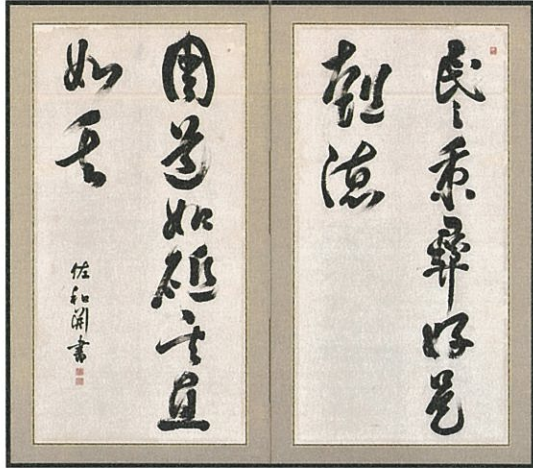 民之秉彝好是
懿德
周道如砥其直
如矢
佐和淵書